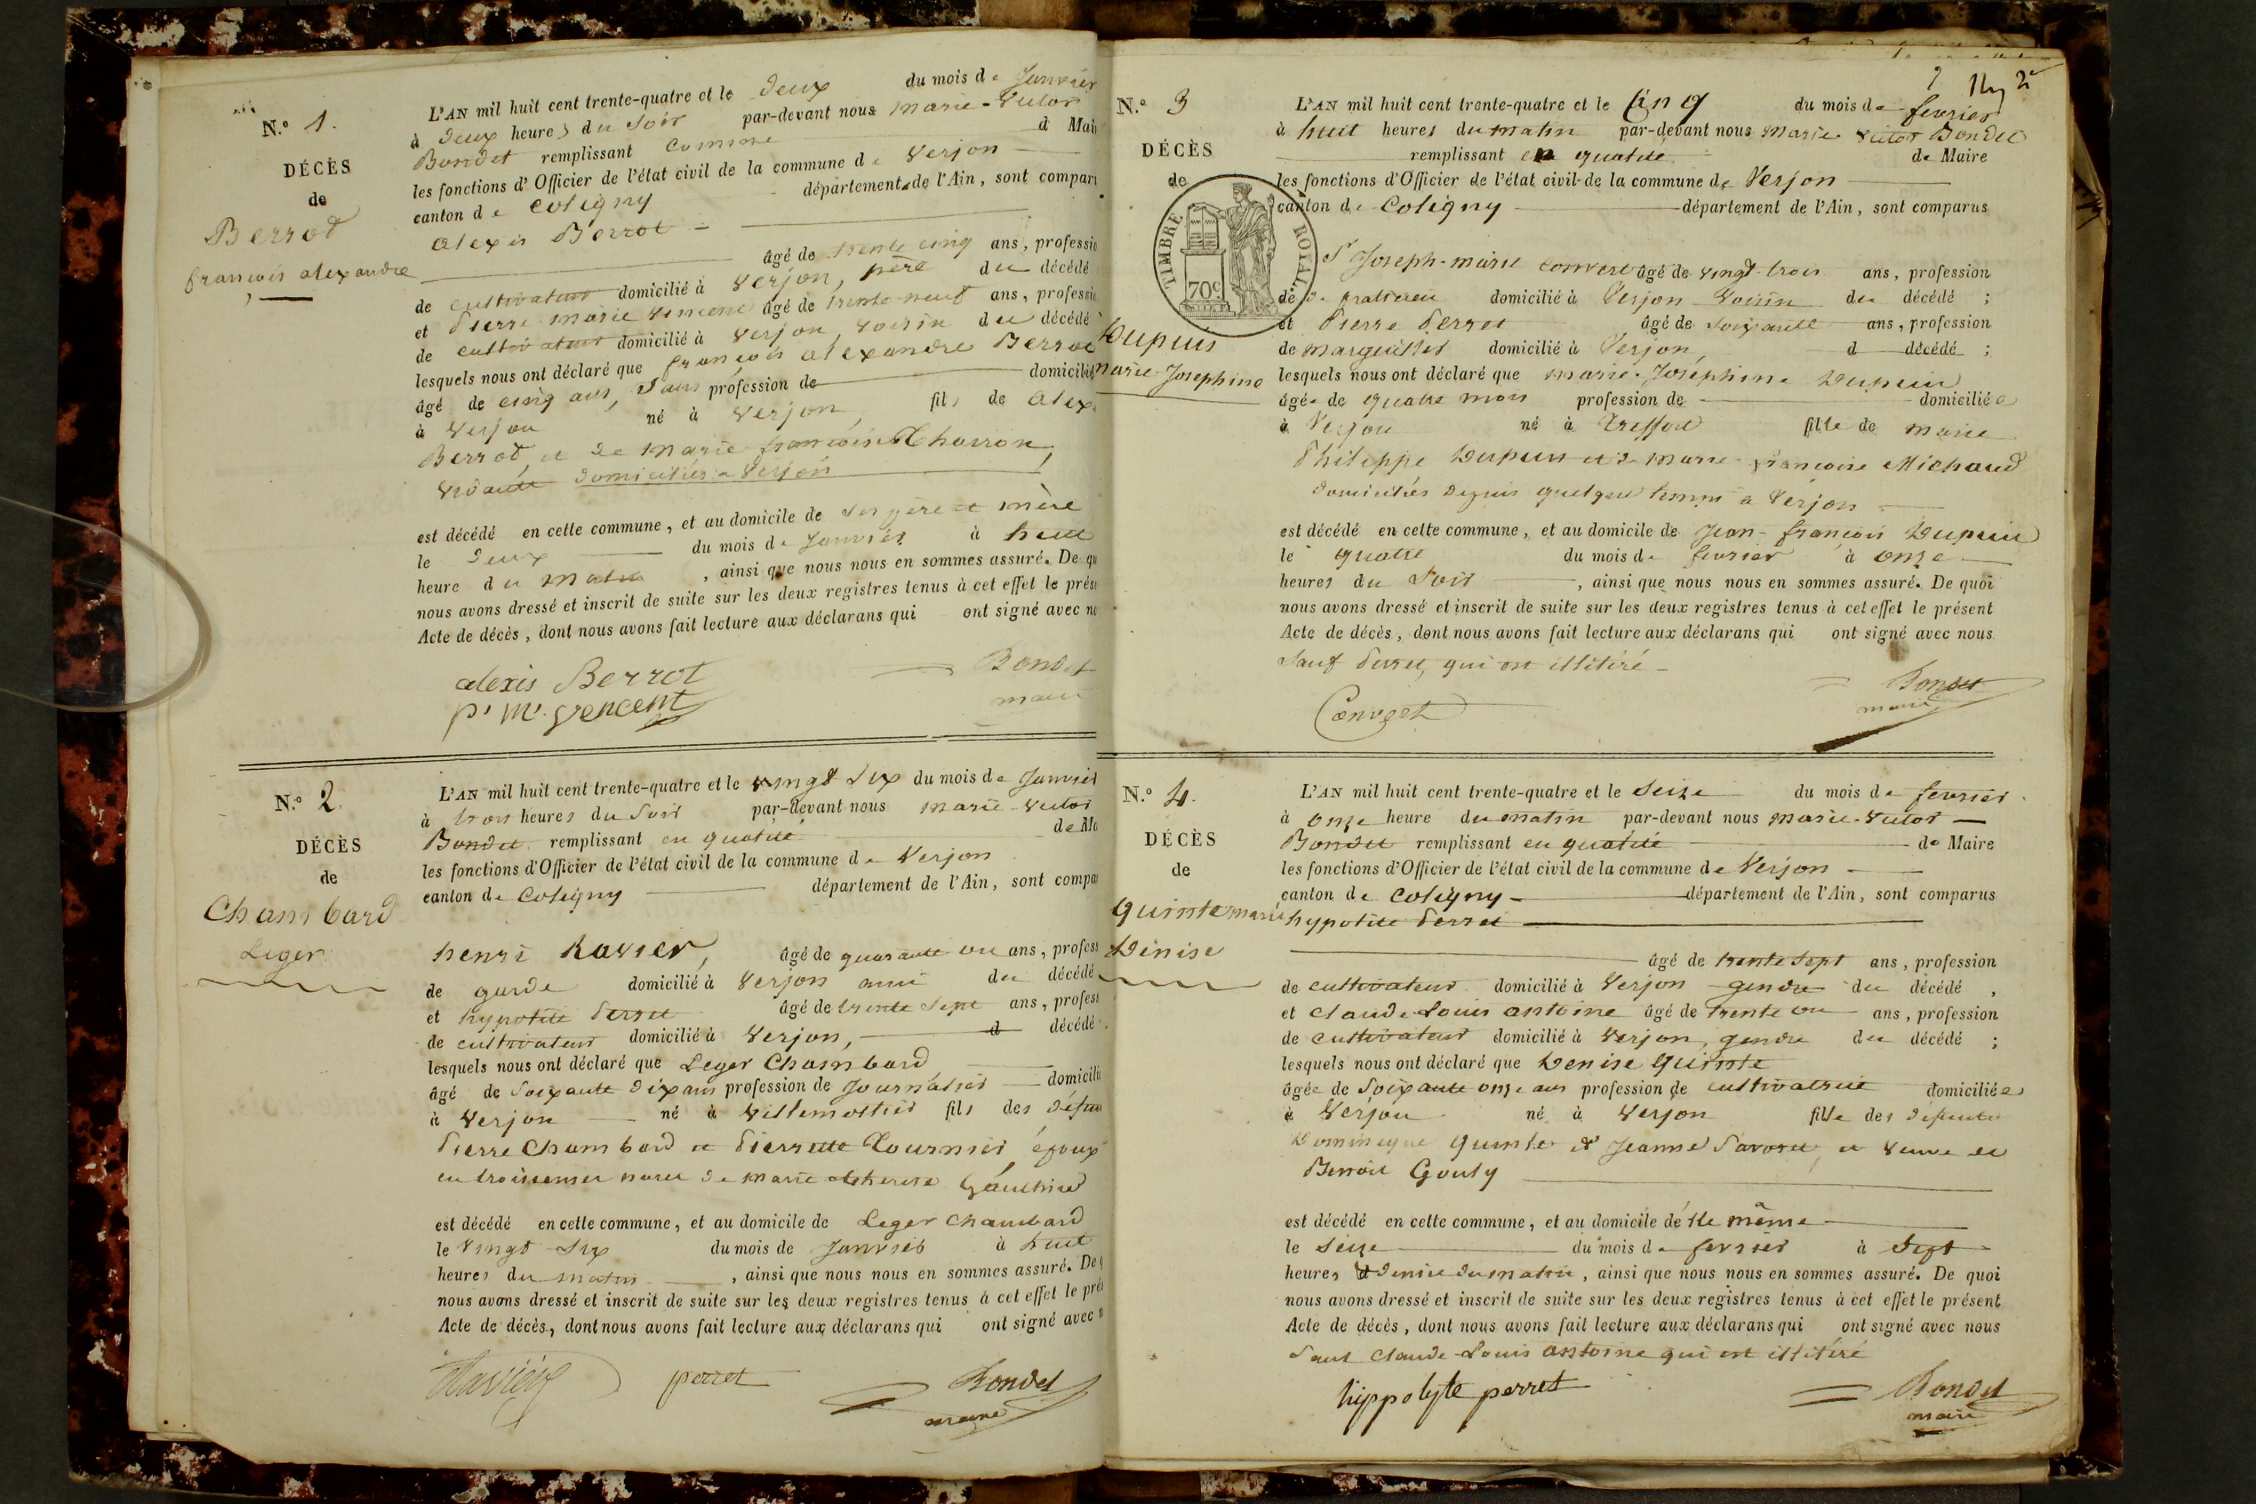 N.º 1.
DÉCÈS
de
Berrod
françois alexandre
L'AN mil huit cent trente-quatre et le deux du mois de Janvier
à deux heures du soir par-devant nous marie-victor
Bondet remplissant comme d Mai
les fonctions d'Officier de l'état civil de la commune de Verjon
canton de Coligny département de l'Ain, sont compar
alexis Berrot
âgé de trente cinq ans, professio
de cultivateur domicilié à Verjon, père du décédé
et Pierre marie Vincent âgé de trente-neuf ans, professio
de cultivateur domicilié à Verjon, voisin du décédé
lesquels nous ont déclaré que françois alexandre Berrod
âgé de cinq ans, sans profession de domicilié
à Verjon né à Verjon, fils de alex
Berrod, et de marie françoise Charron,
domiciliés a Verjon
est décédé en cette commune, et au domicile de ses père et mère
le deux du mois de Janvier à huit
heure du matin, ainsi que nous nous en sommes assuré. De qu
nous avons dressé et inscrit de suite sur les deux registres tenus à cet effet le prése
Acte de décès, dont nous avons fait lecture aux déclarans qui ont signé avec no
alexis Berrot
Bondet
p. m. Vencent
maire
N.º 2.
DÉCÈS
de
Chambard
Leger
L'AN mil huit cent trente-quatre et le vingt six du mois de Janvier
à trois heures du soir par-devant nous marie-victor
Bondet remplissant en qualité de Ma
les fonctions d'Officier de l'état civil de la commune de Verjon
canton de Coligny département de l'Ain, sont compa
henri Ravier, âgé de quarante un ans, profess
de garde domicilié à Verjon ami du décédé
et hypolite Perret âgé de trente sept ans, profess
de cultivateur domicilié à Verjon, d décédé
lesquels nous ont déclaré que Leger Chambard
âgé de soixante dix ans profession de Journalier domicilié
à Verjon né à Villemottier fils des défun
Pierre Chambard et Pierrette Tournier, époux
en troisiemes noces de marie therese Gauthier
est décédé en cette commune, et au domicile de Leger Chambard
le vingt-six du mois de Janvier à huit
heures du matin, ainsi que nous nous en sommes assuré. De
nous avons dressé et inscrit de suite sur les deux registres tenus à cet effet le pré
Acte de décès, dont nous avons fait lecture aux déclarans qui ont signé avec
Ravier perret Bondet
maire
2e
N.º 3
DÉCÈS
de
TIMBRE ROYAL
70c
Dupuis
marie-Josephine
L'AN mil huit cent trente-quatre et le Cinq du mois de fevrier
à huit heures du matin par-devant nous marie victor Bondet
remplissant en qualité de Maire
les fonctions d'Officier de l'état civil de la commune de Verjon
canton de Coligny département de l'Ain, sont comparus
Sr Joseph-marie Convert âgé de vingt-trois ans, profession
de praticien domicilié à Verjon voisin du décédé;
et Pierre Perret âgé de soixante ans, profession
de marguillier domicilié à Verjon, d décédé;
lesquels nous ont déclaré que marie-Joséphine Dupuis
âgée de quatre mois profession de domiciliée
à Verjon né à Treffort fille de marie
Philippe Dupuis et de marie-françoise Michaud
domiciliés depuis quelque temps a Verjon
est décédé en cette commune, et au domicile de Jean-françois Dupuis
le quatre du mois de fevrier à onze
heures du soir, ainsi que nous nous en sommes assuré. De quoi
nous avons dressé et inscrit de suite sur les deux registres tenus à cet effet le présent
Acte de décès, dont nous avons fait lecture aux déclarans qui ont signé avec nous
sauf Perret, qui est illitéré
Convert
Bondet
maire
N.º 4.
DÉCÈS
de
Quinte marie
Dénise
L'AN mil huit cent trente-quatre et le seize du mois de fevrier
à onze heure du matin par-devant nous marie-victor
Bondet remplissant en qualité de Maire
les fonctions d'Officier de l'état civil de la commune de Verjon
canton de Coligny département de l'Ain, sont comparus
hypolite Perret
âgé de trente sept ans, profession
de cultivateur domicilié à Verjon gendre du décédé,
et claude-Louis antoine âgé de trente un ans, profession
de cultivateur domicilié à Verjon, gendre du décédé;
lesquels nous ont déclaré que Denise Quinte
âgée de soixante onze ans profession de cultivatrice domiciliée
à Verjon né à Verjon fille des défunts
Dominique Quinte & Jeanne Pavoret, et veuve de
Benoit Gouly
est décédé en cette commune, et au domicile d'elle même
le seize du mois de fevrier à sept
heures & demie du matin, ainsi que nous nous en sommes assuré. De quoi
nous avons dressé et inscrit de suite sur les deux registres tenus à cet effet le présent
Acte de décès, dont nous avons fait lecture aux déclarans qui ont signé avec nous
sauf claude-Louis antoine qui est illitéré
hippolyte perret Bondet
maire